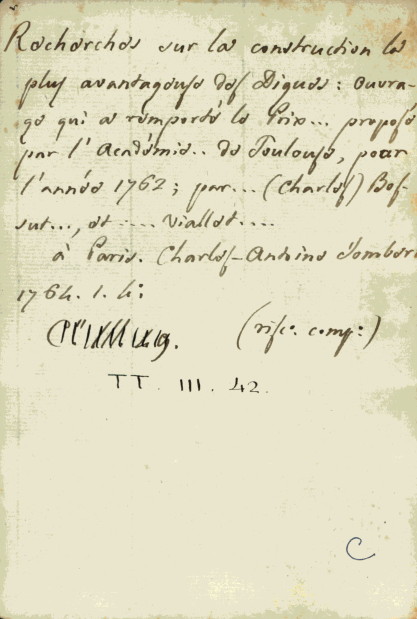 Recherches sur la construction la
plus avantageuse des Digues : ouvra-
ge qui a remporté le Prix... proposé
par l'Académie.. de Toulouse, pour
l'année 1762 ; par... (Charles) Bos-
sut..., et .... Viallet....
à Paris. Charles-Antoine Jombert
1764. 1. 4.°
(risc.° comp.°)
TT. III. 42.
C